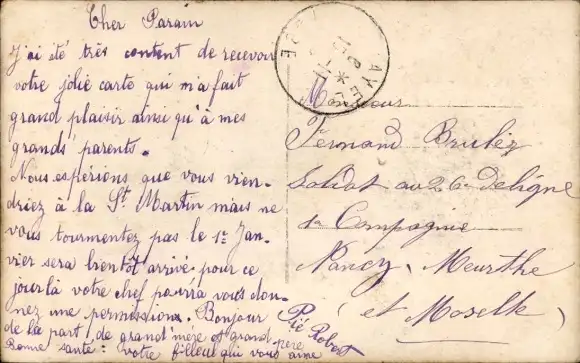 Cher Parain
J'ai été très content de recevoir
votre jolie carte qui m'a fait
grand plaisir ainsi qu'à mes
grands parents.
Nous espérions que vous vien-
driez à la St Martin mais ne
vous tourmentez pas le 1er Jan-
vier sera bientôt arrivé pour ce
jour là votre chef pourra vous don-
nez une permission. Bonjour
de la part de grand'mère et grand père
Bonne santé: votre filleul qui vous aime
Pié Robert
Monsieur
Fernand Brulez
Soldat au 26e de ligne
1e Compagnie
Nancy, Meurthe
(et Moselle)